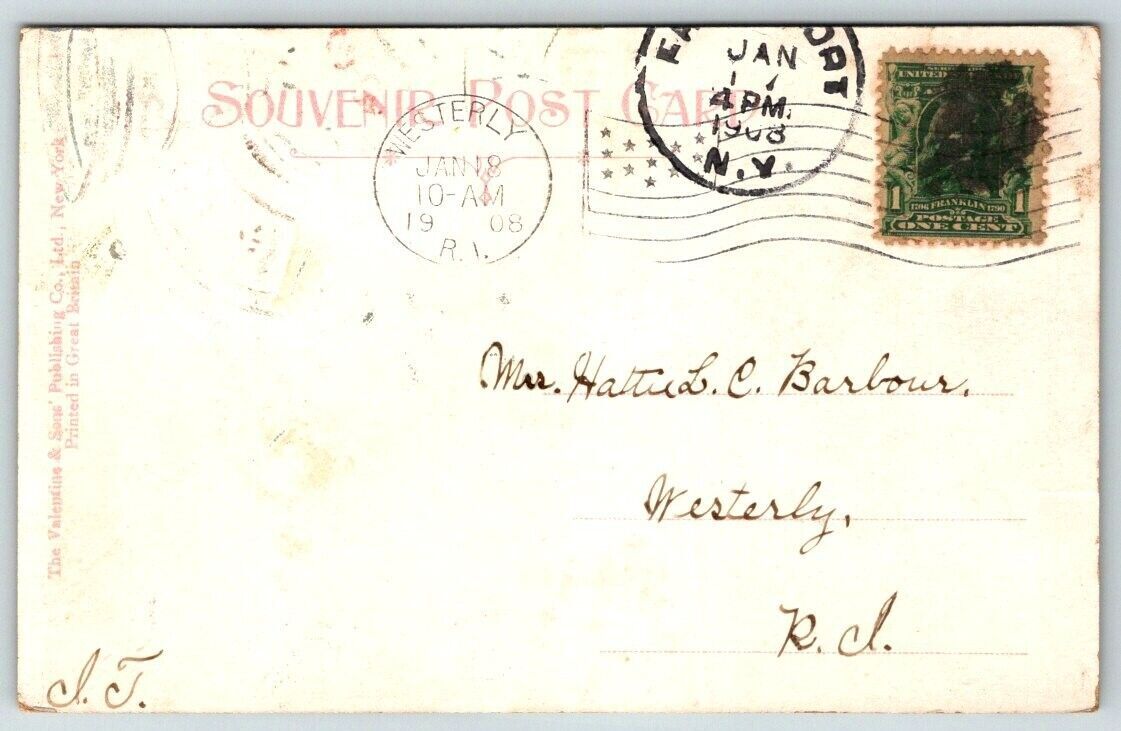 SOUVENIR POST CARD
WESTERLY
JAN 18
10-AM
19 08
R.I.
JAN
4 PM.
1908
N.Y.
UNITED STATES OF
1 1
1706 FRANKLIN 1790
POSTAGE
ONE CENT
The Valentine & Sons' Publishing Co., Ltd., New York
Printed in Great Britain
Mrs. Hattie L. C. Barbour.
Westerly,
R. I.
I. T.